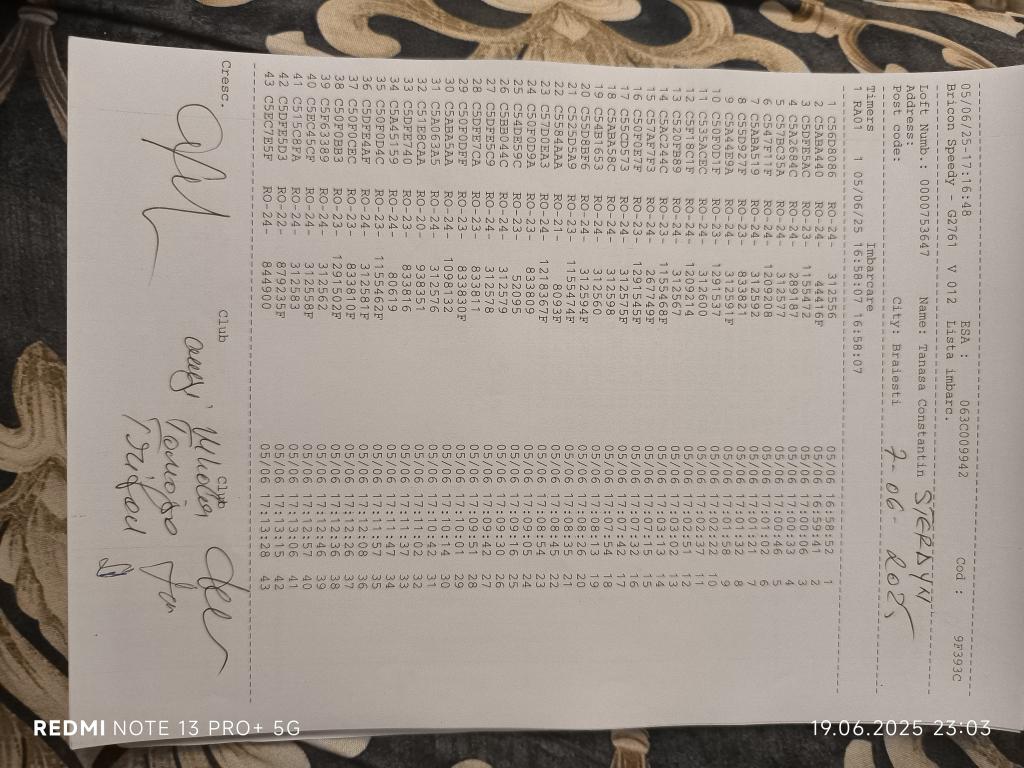 05/06/25-17:16:48 ESA : 063C009942 Cod : 9F393C
Bricon Speedy - G2761 V 012 Lista imbarc.
Loft Numb.: 0000753647 Name: Tanasa Constantin
Address:
Post code: City: Braiesti 7-06-2025
Timers Imbarcare
1 RA01 1 05/06/25 16:58:07 16:58:07
1 C56D8086 RO-24- 312556 05/06 16:58:52 1
2 C5ABA440 RO-24- 44416F 05/06 16:59:41 2
3 C5DFE5AC RO-23- 1155472 05/06 17:00:06 3
4 C5A2684C RO-24- 289187 05/06 17:00:33 4
5 C57BC35A RO-24- 312577 05/06 17:00:46 5
6 C547F11F RO-24- 1209208 05/06 17:01:02 6
7 C5ABA519 RO-24- 312592 05/06
8 C55D927F RO-23- 05/06 8
9 RO-24- 312591F 05/06 9
10 C50F0D1F RO-23- 1291537 05/06 10
11 C535ACEC RO-24- 312600 05/06 11
12 C5F18C1F RO-24- 1209214 05/06 12
13 C520FB89 RO-24- 312567 05/06 13
14 C5AC244C RO-23- 1155468F 05/06 14
15 C57AF7F3 RO-24- 267749F 05/06 17:07:15 15
16 C50F0E7F RO-23- 1291545F 05/06 17:07:32 16
17 C55CD573 RO-24- 312575F 05/06 17:07:42 17
18 C5ABA58C RO-24- 312598 05/06 17:07:54 18
19 C54B1653 RO-24- 312560 05/06 17:08:13 19
20 C55D8BF6 RO-24- 312594F 05/06 17:08:26 20
21 C525D5A9 RO-23- 1155474F 05/06 17:08:35 21
22 C5584AAA RO-21- 8093F 05/06 17:08:45 22
23 C57D0EA3 RO-24- 1218367F 05/06 17:08:54 23
24 C50F0D9A RO-23- 833809 05/06 17:09:05 24
25 C54DE59C RO-24- 52095 05/06 17:09:16 25
26 RO-24- 312579 05/06 17:09:30 26
27 C5DFE5DC RO-24- 312578 05/06 17:09:42 27
28 C5DFE7C2 RO-23- 833811 05/06 17:09:51 28
29 RO-23- 833930F 05/06 17:10:01 29
30 C5ABA5AA RO-22- 1098192 05/06 30
31 C5A0833A RO-24- 312570 05/06 17:10:42 31
32 C51E8CAA RO-23- 05/06 32
33 C5DFE740 RO-23- 833816 05/06 33
34 C5A45159 RO-24- 80619 05/06 34
35 C50F0D4C RO-23- 1155462F 05/06 35
36 C5DFE4AF RO-24- 312581F 05/06 36
37 C50F0CEC RO-23- 833810F 05/06 37
38 C50F0BB3 RO-23- 1291502F 05/06 38
39 C5F63389 RO-24- 312562 05/06 17:12:46 39
40 C5EC45CF RO-24- 312558F 05/06 17:12:57 40
41 C515C8FA RO-24- 312583 05/06 17:13:06 41
42 C5DFE5D3 RO-22- 879235F 05/06 17:13:15 42
43 C5EC7E5F RO-24- 844900 05/06 17:13:28 43
Cresc. Club Club
REDMI NOTE 13 PRO+ 5G
19.06.2025 23:03